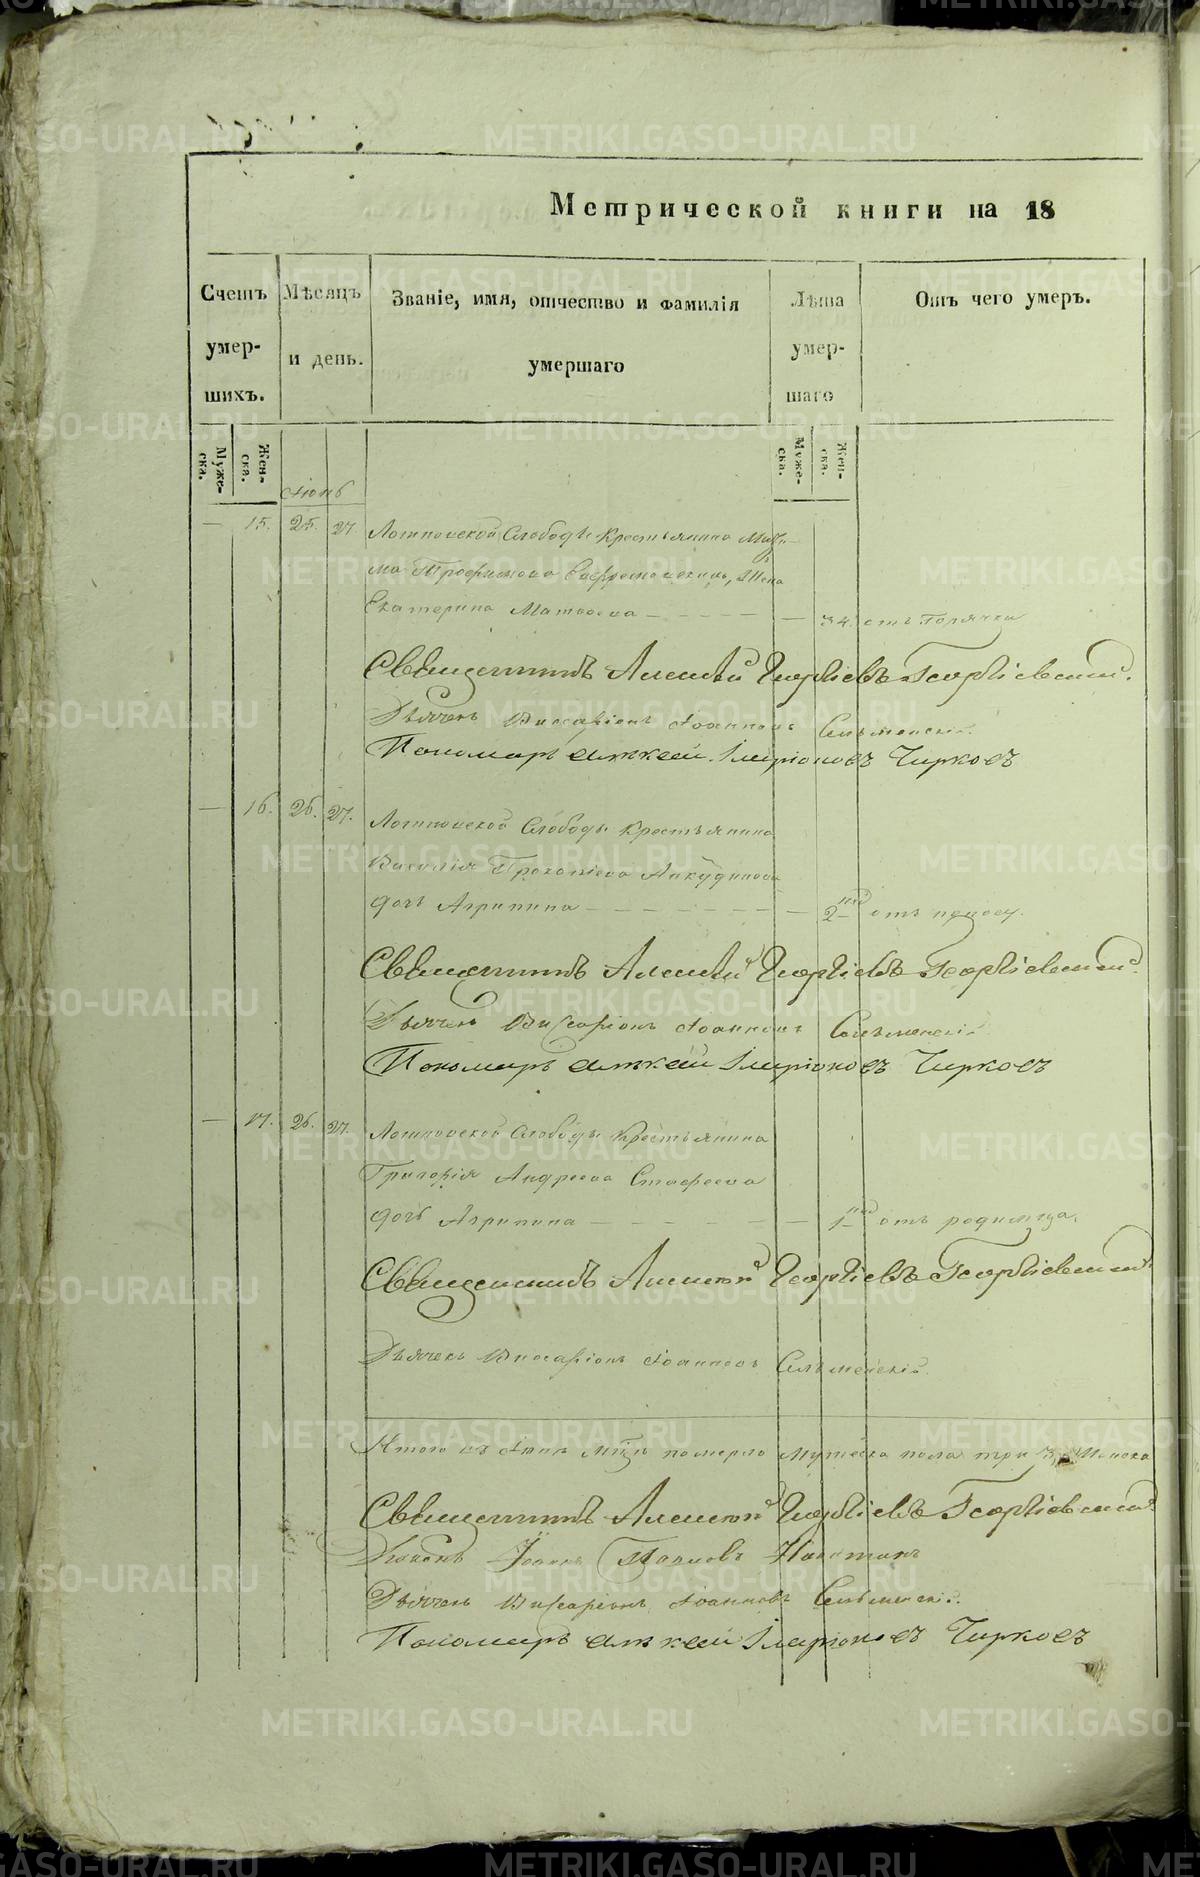 Метрической книги на 18
Счетъ умершихъ.
Мѣсяцъ и день.
Званіе, имя, отчество и фамилія умершаго
Лѣта умершаго
Отъ чего умеръ.
Мужеска. Женска.
Мужеска. Женска.
Іюнь
— 15. 25. 27. Логиновской Слободы Крестьянина
Трофимова Жена
Екатерина Матвеева — 34. отъ горячки
Священникъ Алексѣй Георгіевъ Георгіевскій.
Дьячекъ Виссаріонъ Іоанновъ
Пономарь Алексей Иларіоновъ Чирковъ
— 16. 26. 27. Слободы Крестьянина
Василія Прокопіева Анкудинова
дочь Агрипина — 2 нед отъ поносу.
Священникъ Алексѣй Георгіевъ Георгіевскій.
Дьячекъ Виссаріонъ Іоанновъ
Пономарь Алексей Иларіоновъ Чирковъ
— 17. 26. 27. Слободы Крестьянина
Григорія Андреева Стафеева
дочь Агрипина — 1 нед отъ родимца.
Священникъ Алексѣй Георгіевъ Георгіевскій
Дьячекъ Виссаріонъ Іоанновъ
Итого въ Іюнѣ мцѣ померло мужеска пола три 3, Женска
Священникъ Алексѣй Георгіевъ Георгіевскій
Іоаннъ Никитинъ
Дьячекъ Виссаріонъ Іоанновъ
Пономарь Алексей Иларіоновъ Чирковъ
METRIKI.GASO-URAL.RU